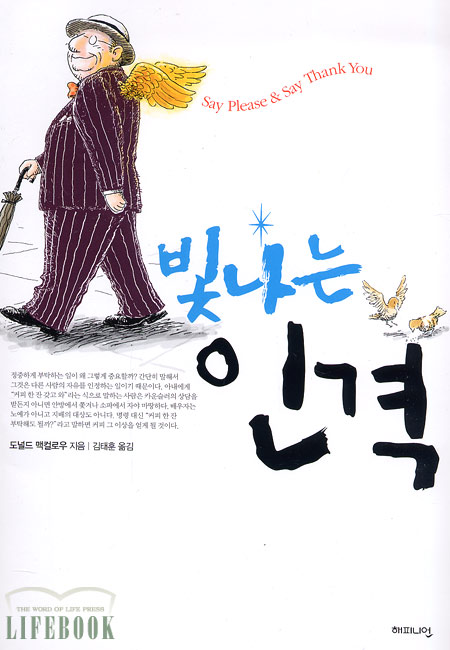 Say Please & Say Thank You
빛나는
인격
정중하게 부탁하는 일이 왜 그렇게 중요할까? 간단히 말해서
그것은 다른 사람의 자유를 인정하는 일이기 때문이다. 아내에게
“커피 한 잔 갖고 와”라는 식으로 말하는 사람은 카운슬러의 상담을
받든지 아니면 안방에서 쫓겨나 소파에서 자야 마땅하다. 배우자는
노예가 아니고 지배의 대상도 아니다. 명령 대신 “커피 한 잔
부탁해도 될까?”라고 말하면 커피 그 이상을 얻게 될 것이다.
도널드 맥컬로우 지음 | 김태훈 옮김
THE WORD OF LIFE PRESS
LIFEBOOK
해피니언